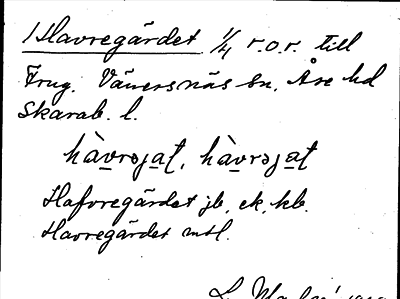 1 Havregärdet 1/4 r.o.r. till
Frug. Vänersnäs sn, Åse hd
Skarab. l.
hàvrəjat, hàvrəjat
Hafvregärdet jb, ek, kb.
Havregärdet mtl.